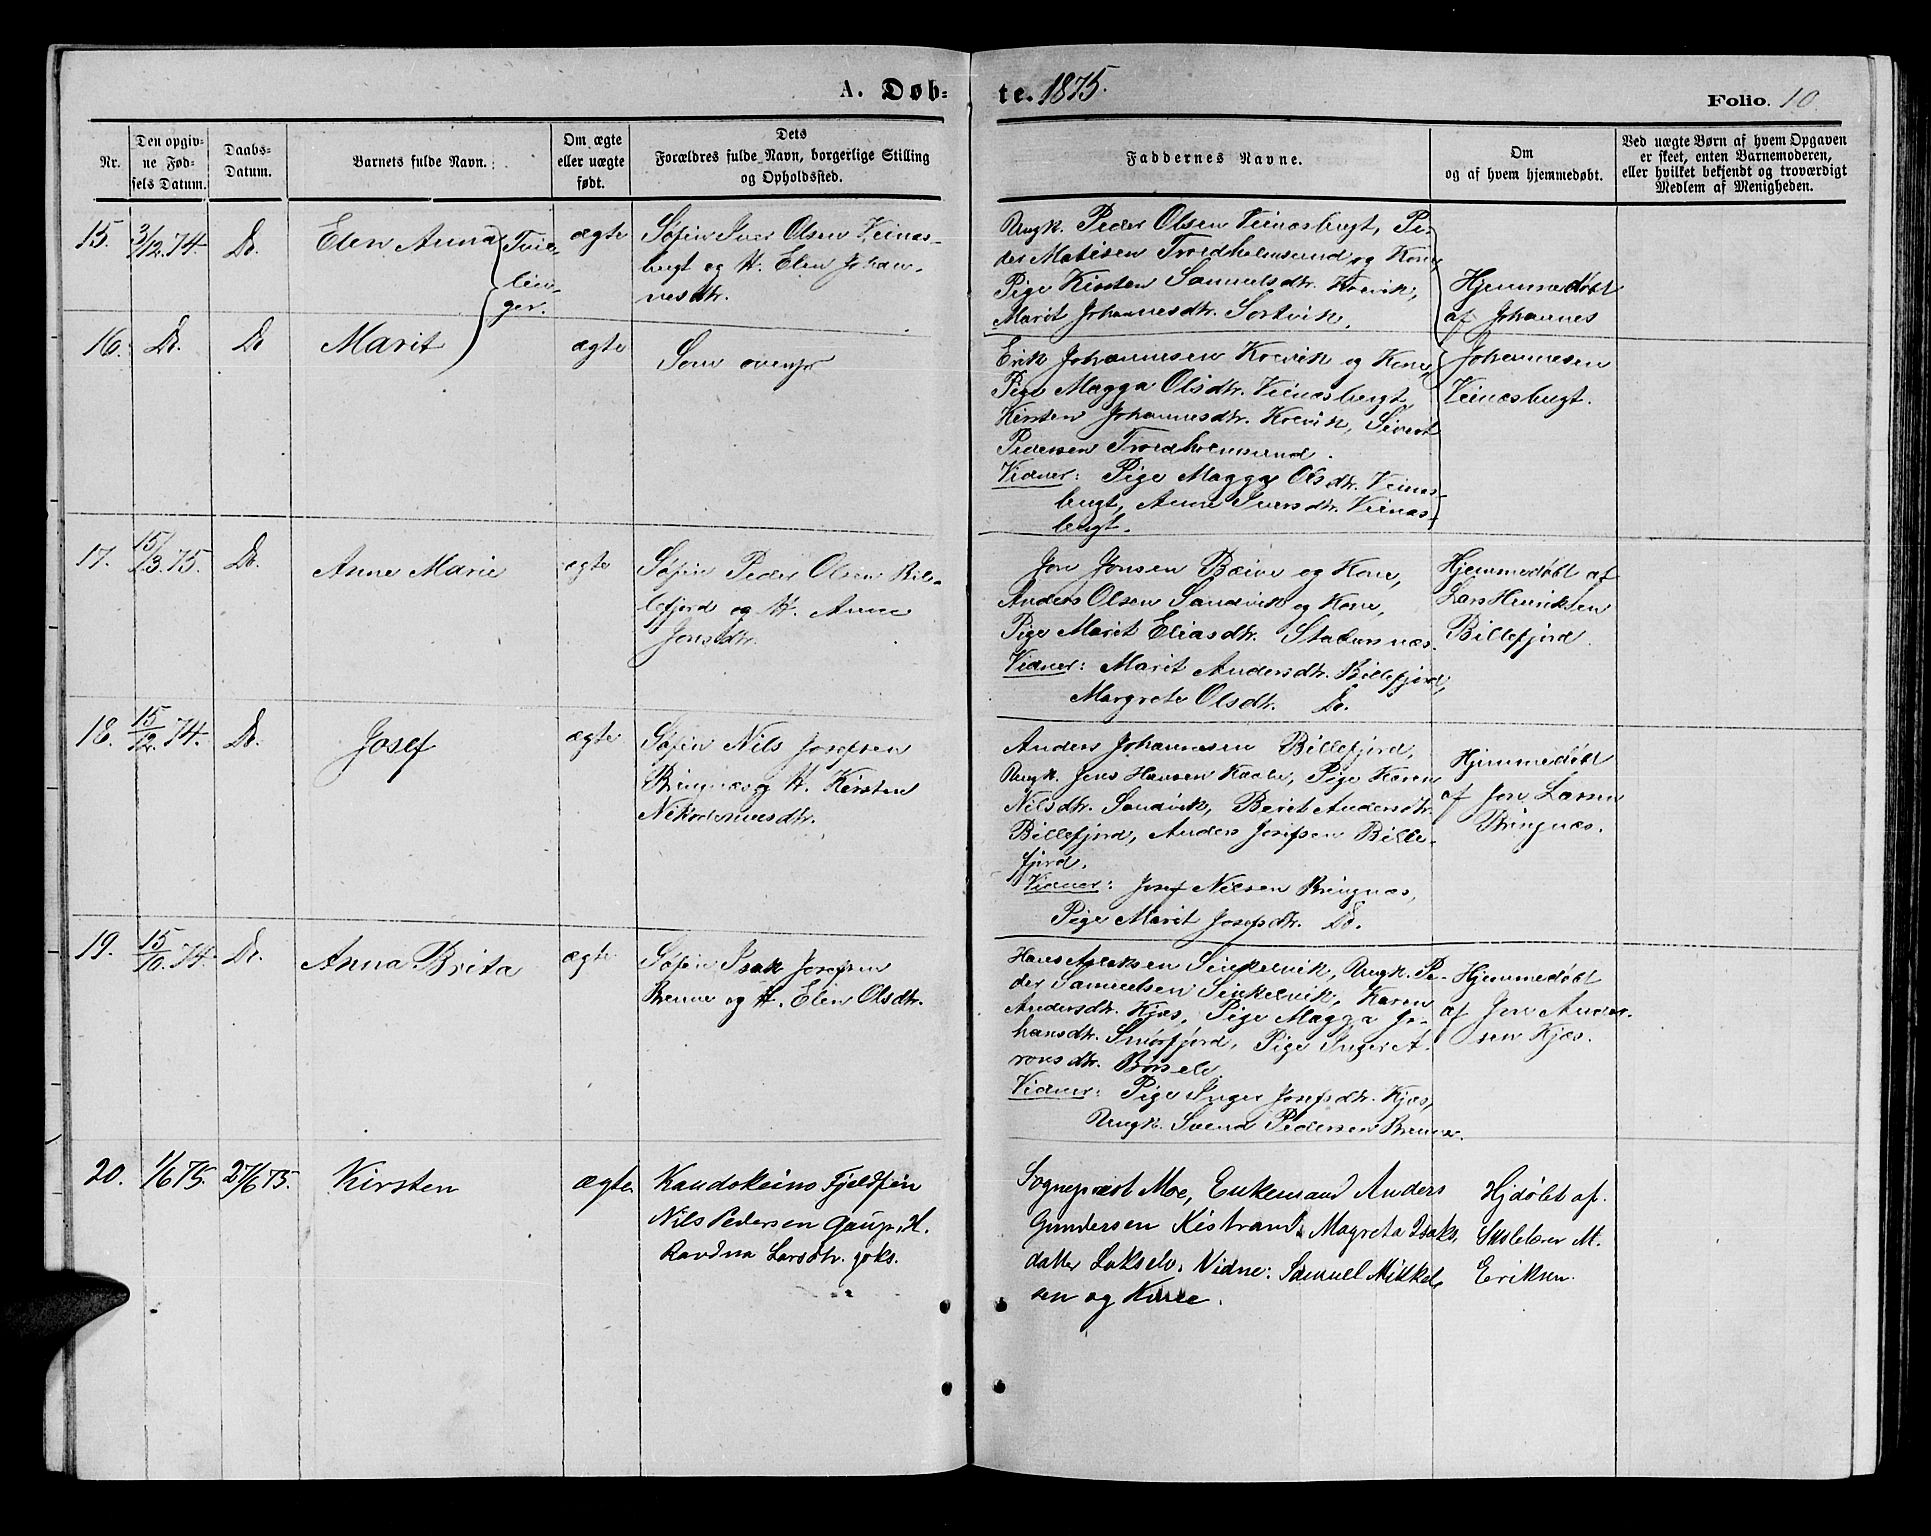 A. Døb-
te. 1875.
Folio. 10.
Nr.
Den opgiv-
ne Fød-
sels Datum.
Daabs-
Datum.
Barnets fulde Navn.
Om ægte
eller uægte
født.
Dets
Forældres fulde Navn, borgerlige Stilling
og Opholdssted.
Faddernes Navne.
Om
og af hvem hjemmedøbt.
Ved uægte Børn af hvem Opgaven
er skeet, enten Barnemoderen,
eller hvilket bekjendt og troværdigt
Medlem af Menigheden.
15. 3/12.74. Do. Elen Anna Tvil-
lin-
ger.
ægte
Søfin Iver Olsen Veinæs-
bugt og H. Elen Johan-
nesdtr.
Ungk. Peder Olsen Veinæsbugt, Pe-
der Mathisen Troldholmsund og Kone,
Pige Kirsten Samuelsdtr. Kolvik,
Marit Johannesdtr. Sortvik.
Hjemmedøbt
af Johannes
Johannesen
Veinæsbugt.
16. Do. Do Marit ægte Som ovenfor
Erik Johannesen Kolvik og Kone,
Pige Magga Olsdtr. Veinæsbugt,
Kirsten Johannesdtr. Kolvik, Sivert
Pedersen Troldholmsund.
Vidner: Pige Magga Olsdtr. Veinæs-
bugt, Anne Iversdtr. Veinæs-
bugt.
17. 15/3.75. Do. Anne Marie ægte
Søfin Peder Olsen Bil-
lefjord og H. Anne
Jonsdtr.
Jon Jonsen Bæive og Kone,
Anders Olsen Sandvik og Kone,
Pige Marit Eliasdtr. Stabursnæs.
Vidner: Marit Andersdtr. Billefjord,
Margrete Olsdtr. Do.
Hjemmedøbt af
Lars Henriksen
Billefjord.
18. 15/12.74. Do. Josef ægte
Søfin Nils Josefsen
Bringnæs og H. Kirsten
Nikodemusdtr.
Anders Johannesen Billefjord,
Ungk. Jens Hansen, Pige Karen
Nilsdtr. Sandvik, Beret Andersdtr.
Billefjord, Anders Josefsen Bille-
fjord.
Vidner: Josef Nilsen Bringnæs,
Pige Marit Josefsdtr. Do.
Hjemmedøbt
af Jon Larsen
Bringnæs.
19. 15/10.74. Do. Anna Brita ægte
Søfin Isak Josefsen
Brenne og H. Elen Olsdtr.
Hans Aslaksen Sinkelvik, Ungk. Pe-
der Samuelsen Sinkelvik, Karen
Andersdtr. Kjæs, Pige Magga Jo-
hansdtr. Smørfjord, Pige Inger A-
ronsdtr. Børselv.
Vidner: Pige Inger Josefsdtr. Kjæs,
Ungk. Svend Pedersen Brenne.
Hjemmedøbt
af Jon Ander-
sen Kjæs.
20. 1/6 75. 27/6 75. Kirsten ægte
Kautokeino Fjeldfin
Nils Pedersen Gaup, H.
Ravdna Larsdtr. Joks.
Sogneprest Moe, Enkemand Anders
Gundersen Kistrand, Magreta Isaks
datter Lakselv. Vidne: Samuel Mikkel
sen og Kone.
Hjdøbt af
Skolelærer M.
Eriksen.